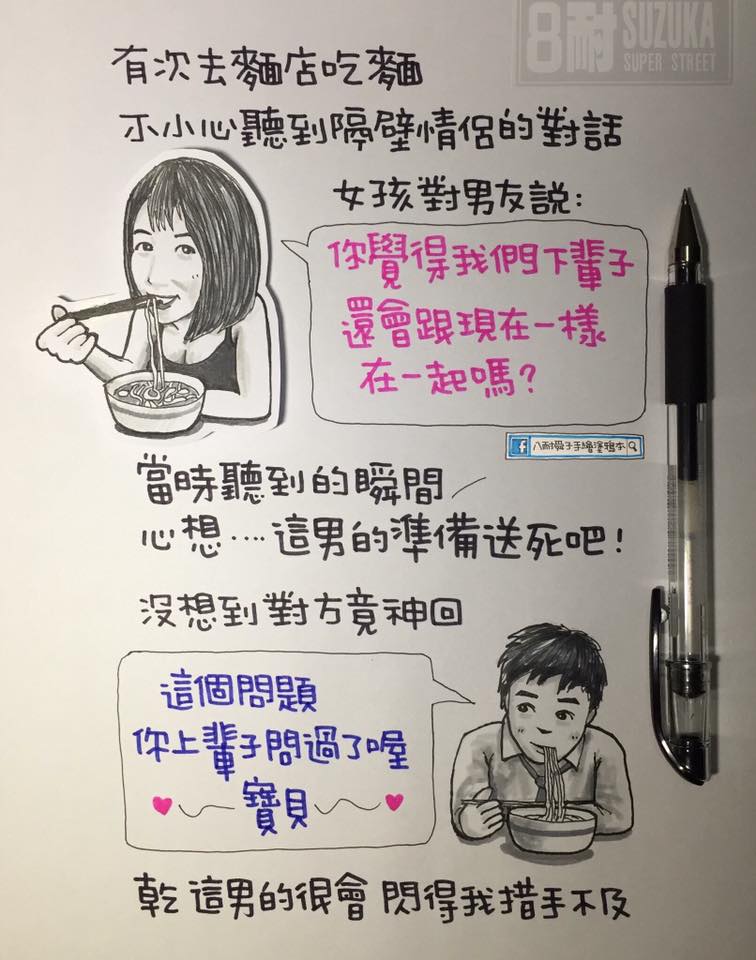 8耐 SUZUKA
SUPER STREET
有次去麵店吃麵
不小心聽到隔壁情侶的對話
女孩對男友說:
你覺得我們下輩子
還會跟現在一樣
在一起嗎?
八耐舜子手繪塗鴉本
當時聽到的瞬間
心想....這男的準備送死吧!
沒想到對方竟神回
這個問題
你上輩子問過了喔
寶貝
乾 這男的很會 閃得我措手不及